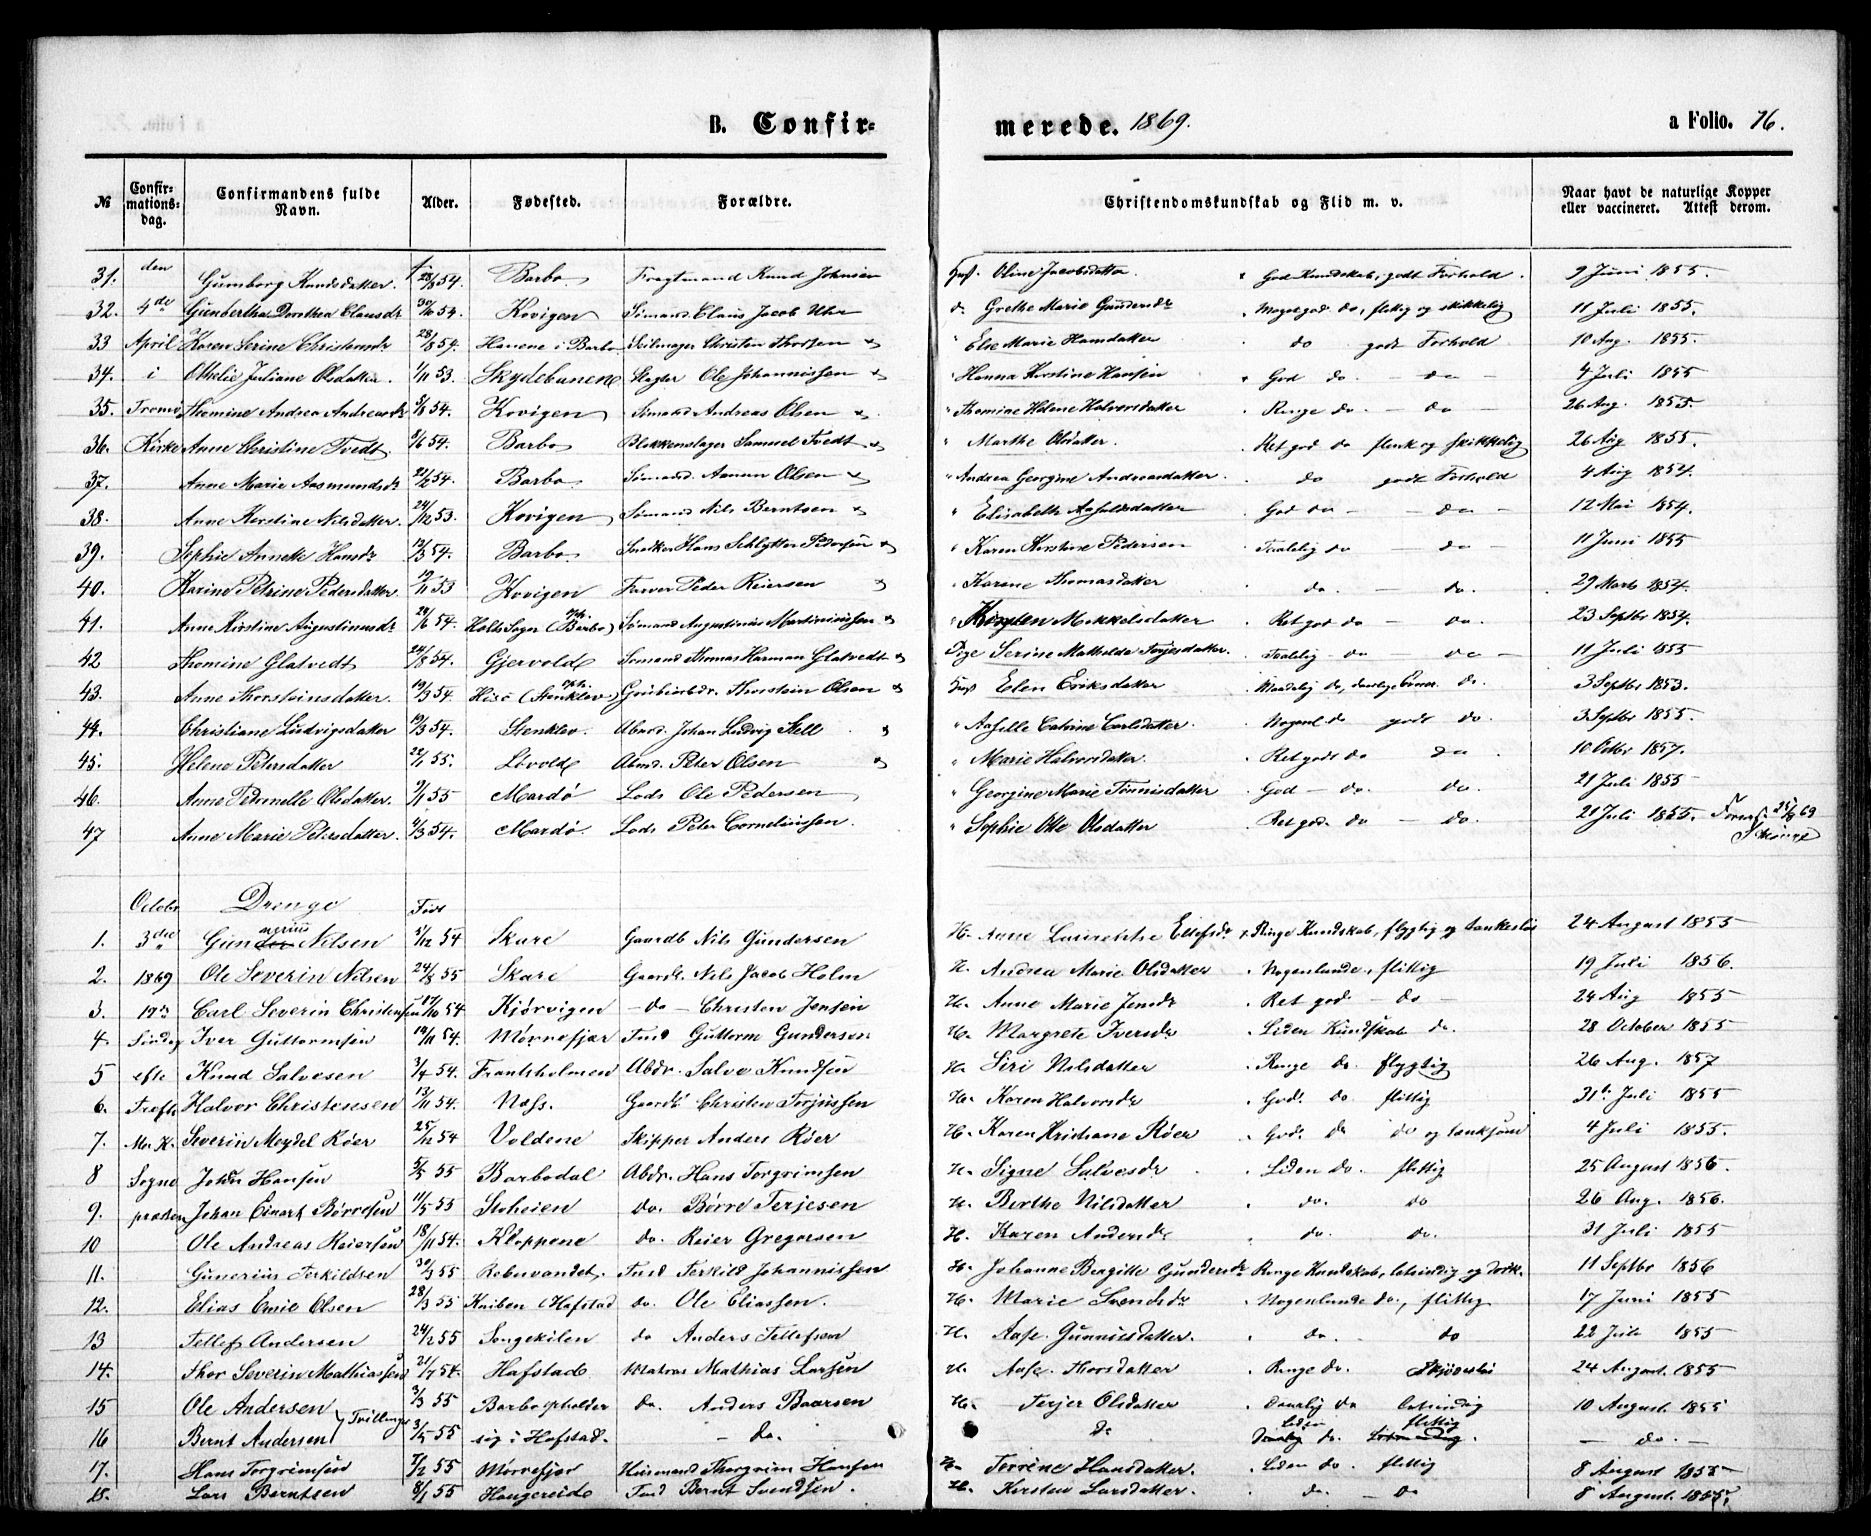 B. Confir-
merede. 1869.
a Folio. 76.
№ Confir-mations-dag. Confirmandens fulde Navn. Alder. Fødested. Forældre. Christendomskundskab og Flid m. v. Naar havt de naturlige Kopper eller vaccineret. Attest derom.
31. den Gumborg Knudsdatter. 28/8 54. Barbo Fragtmand Knud Johnsen Hust. Oline Jacobsdatter God Kundskab, godt Forhold. 9 Juni 1855.
32. 4de Gunbertha Dorothea Clausdr 30/10 54. Kovigen Sømand Claus Jacob d. Grethe Marie Gundersdr Meget god do, flittig og skikkelig 11 Juli 1855.
33 April Karen Serine Christensdr 28/8 54. Hanene i Barbo Seilmager Christen Thorsen " Else Marie Hansdatter do godt Forhold 10 Aug. 1855.
34. i Othelie Juliane Olsdatter. 1/11 53. Skydebanen Slagter Ole Johannissen " Hanna Kirstine Hansen " God do. — do — 4 Juli 1855
35. Tromø Thomine Andrea Andreasdr 54. Kovigen Sømand Andreas Olsen " Thomine Helene Halvorsdatter Ringe do. — do — 26 Aug. 1855.
36. Kirke Anne Christine Tvedt 2/6 54. Barbo Blokkenslager Samuel Tvedt " Marthe Olsdatter. Ret god do flink og skikkelig 26 Aug 1855.
37. Anne Marie Aasmundsdr 22/2 54. Barbo Sømand Amun Olsen " Andrea Georgine Andreasdatter. do godt Forhold 4 Aug 1854.
38. Anne Kirstine Nilsdatter. 24/12 53. Kovigen Sømand Nils Berntsen " Elisabeth Asfoldsdatter God do — do — 12 Mai 1854.
39. Sophie Annette Hansdr 12/3 54. Barbo Snedker Hans Schlytter Pedersen " Karen Kirstine Pedersen Taalelig do — do — 11 Juni 1855
40. Karine Petrine Pedersdatter 19/11 53 Kovigen Farver Peder Reiersen " Karene Thomasdatter do. — do. 29 Marts 1854.
41. Anne Kirstine Augustinusdr 24/6 54. Holts Sogn (oph. Barbo) Sømand Augustinus Martiniussen " Kirsten Mikkelsdatter Ret god do — do. 23 Septbr 1854.
42 Thomine Glatvedt 24/8 54. Gjervold Sømand Thomas Herman Glatvedt Pige Serine Mathilde Terjesdatter. Taalelig — do do — 11 Juli 1855
43. Anne Thorsteinsdatter. 19/3 54. Hisø (oph. Stenklev) Thorstein Olsen Hust Elen Eriksdatter Maadelig do, daarlige do. 3 Septbr 1853.
44. Christiane Ludvigsdatter 19/3 54. Stenklev. Johan Ludvig Stell " Catrine Carlsdatter. Nogenl do godt do. 3 Septbr 1855.
45. Helene Petersdatter 22/1 55. Løvold Peter Olsen " Marie Halvorsdatter. Ret godt do do 10 Octbr 1857.
46. Anne Pernelle Olsdatter. 9/1 55 Mardø Lods Ole Pedersen " Georgine Marie Tønnisdatter God — do. do. 21 Juli 1855
47 Anne Marie Petersdatter. 4/3 54. Mardø. Lods Peter Corneliussen. " Sophie Olsdatter Ret god. do — do. 21 Juli 1855. 69
Octobr Drenge Født
1. 3die Gunerius Nilsen 5/12 54 Skare Gaardb Nils Gundersen H. Anne Ellefsdr Ringe Kundskab, flygtig og tankeløs 24 August 1855
2. 1869 Ole Severin Nilsen 24/8 55 Skare Gaardb. Nils Jacob Holm H. Andrea Marie Olsdatter Nogenlunde, flittig 19 Juli 1856.
3. Carl Severin Christensen 17/10 54 Kjørvigen — do — Christen Jensen H. Anne Marie Jensdr Ret god. — do — 24 Aug 1855
4. Søndag Iver Guttormsen 19/11 54. Mørrefjær Inds Guttorm Gundersen H. Margrete Iversdr Liden Kundskab do. 28 October 1855
5 efter Knud Salvesen 3/4 54. Frantsholmen Abdr. Salve Knudsen H. Siri Nilsdatter Ringe do. flygtig 26 Aug. 1857
6. Trefh. Halvor Christensen 13/11 54. Næss. Gaardb Christen Terjussen H. Karen Halvorsdr God. do flittig 31te Juli 1855
7. Severin Møydel Röer 25/12 54 Voldene Skipper Anders Röer H. Karen Kristiane Röer God. do do og tanksom 4 Juli 1855.
8 Sogne Johan Hansen 55 Barbodal Abdr. Hans Torgrimsen H. Signe Salvesdr Liden do. flittig 25 August 1856.
9. præsten Johan Einart Børresen 11/5 55 Stoheien do. Børre Terjesen H. Berthe Nilsdatter do. do 26 Aug. 1856.
10 Ole Andreas Reiersen 18/11 54. Kloppene do. Reier Gregersen H. Karen Andersdr do. do. 31 Juli 1855
11. Gunerius Terkildsen 30/3 55 Rebervandet. Inds Terkild Johannissen H. Johanne Bergitte Gundersdr Ringe Kundskab, letsindig og 11 Septbr 1856
12. Elias Emil Olsen 28/3 55 Kniben (Hafstad do. Ole Eliassen. H. Marie Svendsdr Nogenlunde do., flittig 17 Juni 1855
13 Tellef Andersen 24/2 55 Songekilen do Anders Tellefsen H. Aase Gunnisdatter. do. do 22 Juli 1855
14. Thor Severin Mathiassen 21/7 54. Hafstad. Matros Mathias Larsen H. Aase Thorsdatter Ringe do. Skjødesløs 24 August. 1855
15 Ole Andersen } Tvillinger 3/3 55 Barbo opholder do. Anders Baarsen H. Terjer Olsdatter Daarlig do letsindig 10 August. 1855
16 Bernt Andersen 3/3 55 sig i Hafstad. — do. do Liden do. flittig — do. —
17. Hans Torgrimsen 7/2 55 Mørrefjær Huusmand Thorgrim Hansen H. Torrine Hansdatter. Liden do. flittig 8 August 1855
18. Lars Berntsen 8/1 55 Haugereid Inds Bernt Svendsen. H. Kirsten Larsdatter. do. — do 8 August. 1855.